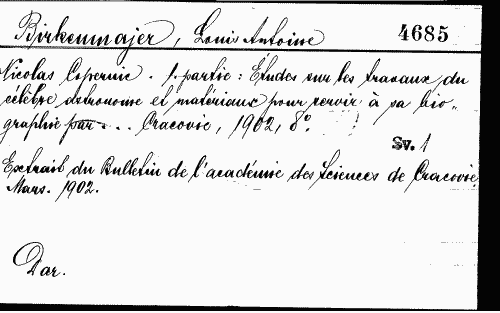 Birkenmajer, Louis Antoine 4685
Nicolas Copernic. 1. partie: Études sur les travaux du
célèbre astronome et matériaux pour servir à sa bio-
graphie par... Cracovie, 1902, 8°.
Sv. 1
Extrait du Bulletin de l'académie des Sciences de Cracovie,
Mars. 1902.
Dar.